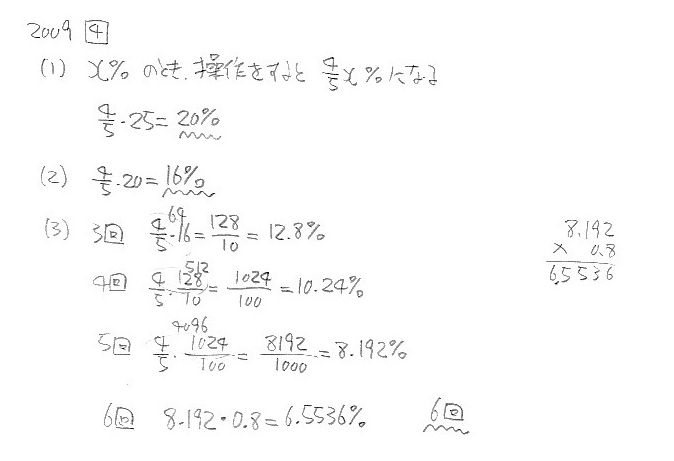 2009 4
(1) x% のとき、操作をすると 4/5 x % になる
4/5・25=20%
(2) 4/5・20=16%
(3) 3回 4/5・16=128/10=12.8%
64
4回 4/5・128/10=1024/100=10.24%
512
5回 4/5・1024/100=8192/1000=8.192%
4096
6回 8.192・0.8=6.5536% 6回
8.192
× 0.8
6.5536